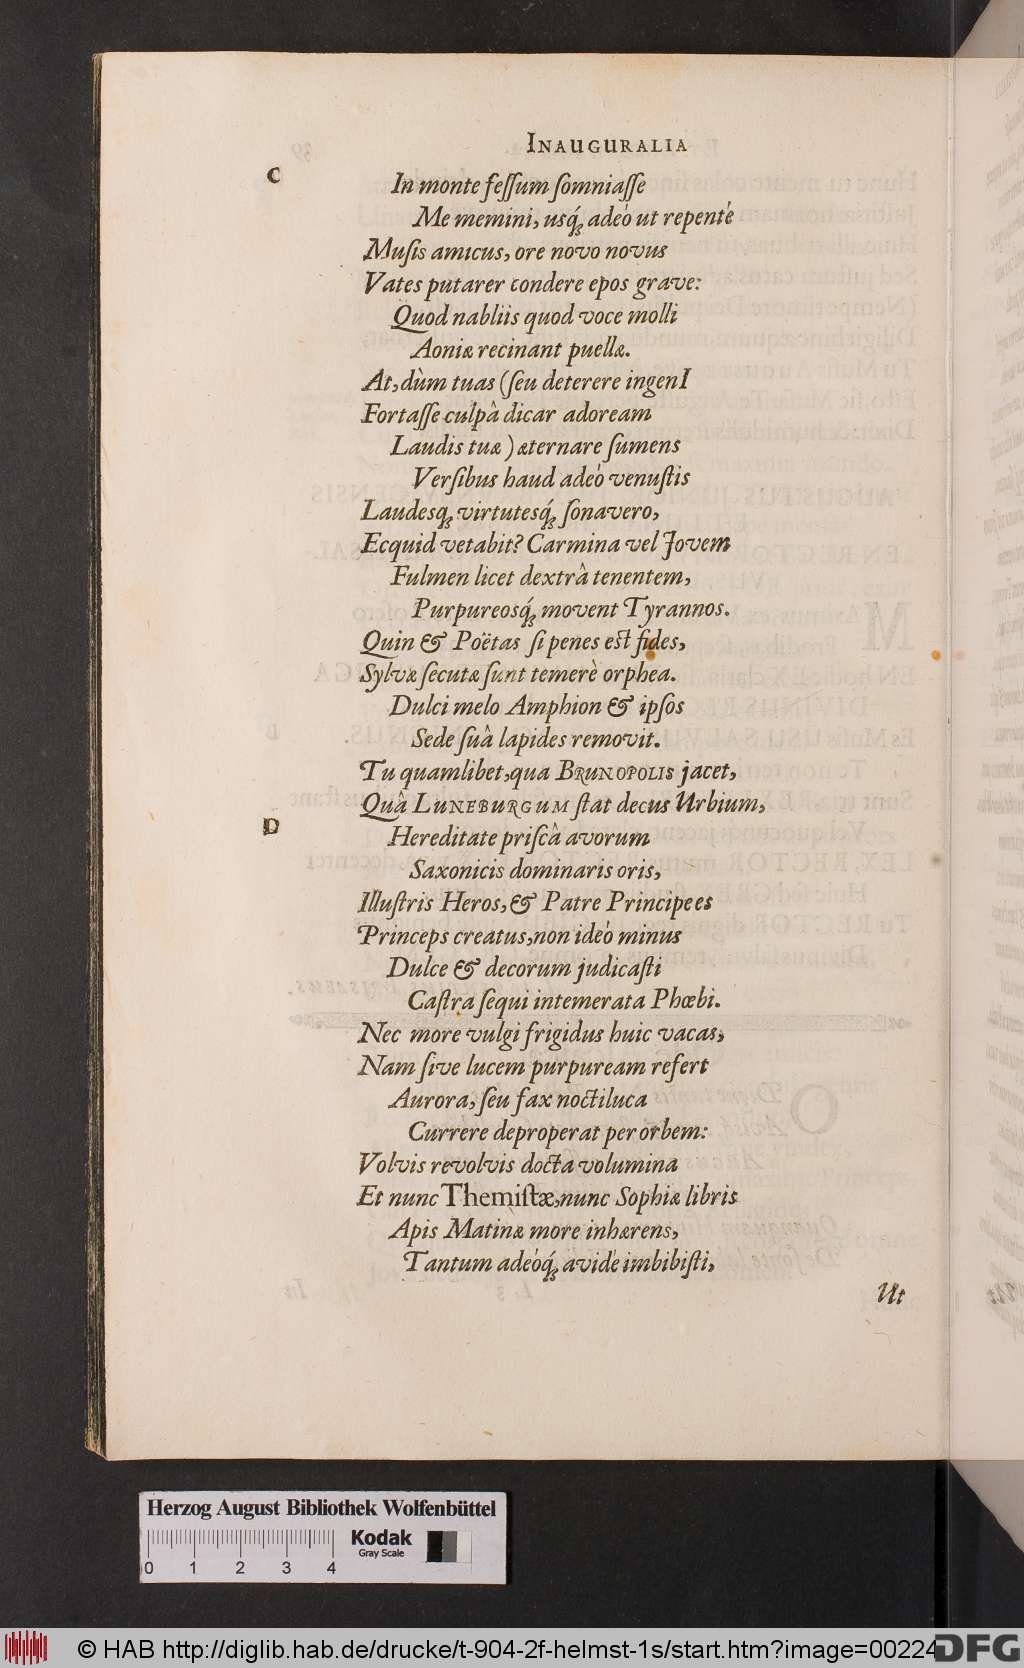 INAUGURALIA
C
In monte feſſum ſomniaſſe
Me memini, usq́ꝫ adeò ut repentè
Muſis amicus, ore novo novus
Vates putarer condere epos grave:
Quod nabliis quod voce molli
Aoniæ recinant puellæ.
At, dùm tuas (ſeu deterere ingenI
Fortaſſe culpâ dicar adoream
Laudis tuæ) æternare ſumens
Verſibus haud adeò venuſtis
Laudesqꝫ virtutesq́ꝫ ſonavero,
Ecquid vetabit? Carmina vel Jovem
Fulmen licet dextrâ tenentem,
Purpureosq́ꝫ movent Tyrannos.
Quin & Poëtas ſi penes eſt fides,
Sylvæ ſecutæ ſunt temerè orphea.
Dulci melo Amphion & ipſos
Sede ſuâ lapides removit.
Tu quamlibet, qua BRUNOPOLIS jacet,
Quâ LUNEBURGUM ſtat decus Urbium,
D
Hereditate priſcâ avorum
Saxonicis dominaris oris,
Illuſtris Heros, & Patre Principe es
Princeps creatus, non ideò minus
Dulce & decorum judicaſti
Caſtra ſequi intemerata Phœbi.
Nec more vulgi frigidus huic vacas,
Nam ſive lucem purpuream refert
Aurora, ſeu fax noctiluca
Currere deproperat per orbem:
Volvis revolvis docta volumina
Et nunc Themiſtæ, nunc Sophiæ libris
Apis Matinæ more inhærens,
Tantum adeòq́ꝫ avidè imbibiſti,
Ut
Herzog August Bibliothek Wolfenbüttel
Kodak
Gray Scale
0 1 2 3 4
© HAB http://diglib.hab.de/drucke/t-904-2f-helmst-1s/start.htm?image=00224
DFG